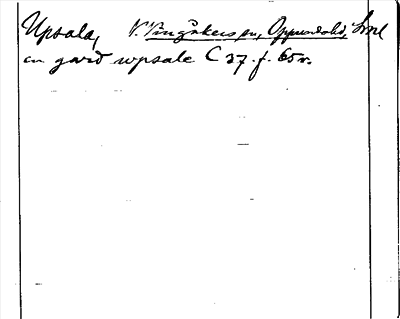 Upsala, V. Vingåkers sn, Oppunda hd, Sml
en gard wpsale C 37 f. 65 v.